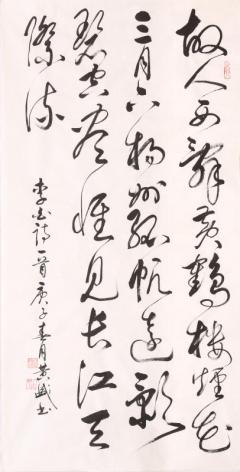 故人西辞黄鹤楼烟花
三月下扬州孤帆远影
碧空尽惟见长江天
际流
李白诗一首庚子春月黄盛书